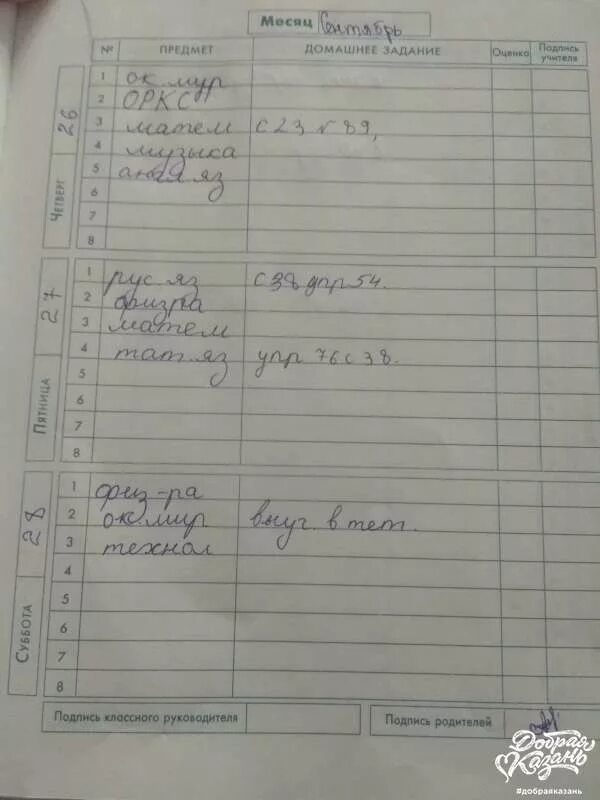 Месяц Сентябрь
№ ПРЕДМЕТ ДОМАШНЕЕ ЗАДАНИЕ Оценка Подпись учителя
Четверг 26
1 ок.мир
2 ОРКС
3 матем с 23 № 89,
4 музыка
5 англ яз
6
7
8
Пятница 27
1 рус яз с 38 упр 54.
2 физра
3 матем
4 тат яз упр 76 с 38.
5
6
7
8
Суббота 28
1 физ-ра
2 ок.мир выуч в тет.
3 технол
4
5
6
7
8
Подпись классного руководителя Подпись родителей
Добрая Казань
#добраяказань